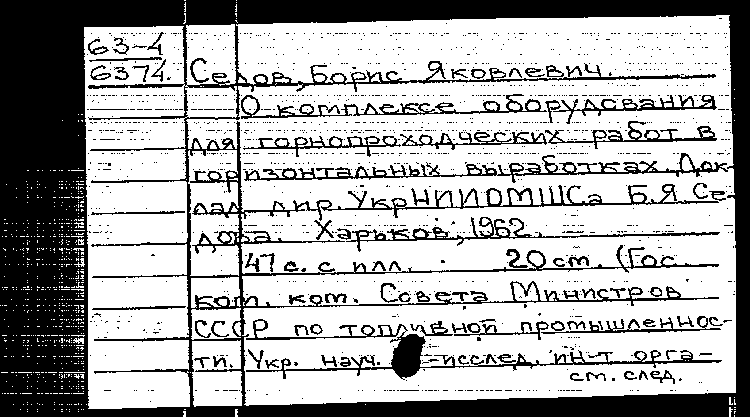 63-4
6374.
Седов, Борис Яковлевич.
О комплексе оборудования
для горнопроходческих работ в
горизонтальных выработках. Док-
лад. дир. УкрНИИОМШСа Б.Я. Се-
дова. Харьков, 1962.
47 с. с илл. 20 см. (Гос.
ком. ком. Совета Министров
СССР по топливной промышленнос-
ти. Укр. науч. -исслед. ин-т орга-
см. след.